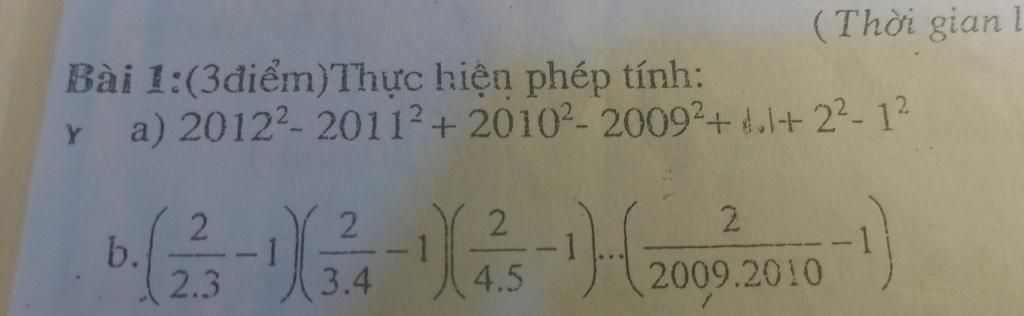 ( Thời gian l
Bài 1:(3điểm)Thực hiện phép tính:
a) 2012²- 2011² + 2010²- 2009²+ ...+ 2²- 1²
b. (2/2.3 − 1)(2/3.4 − 1)(2/4.5 − 1)...(2/2009.2010 − 1)